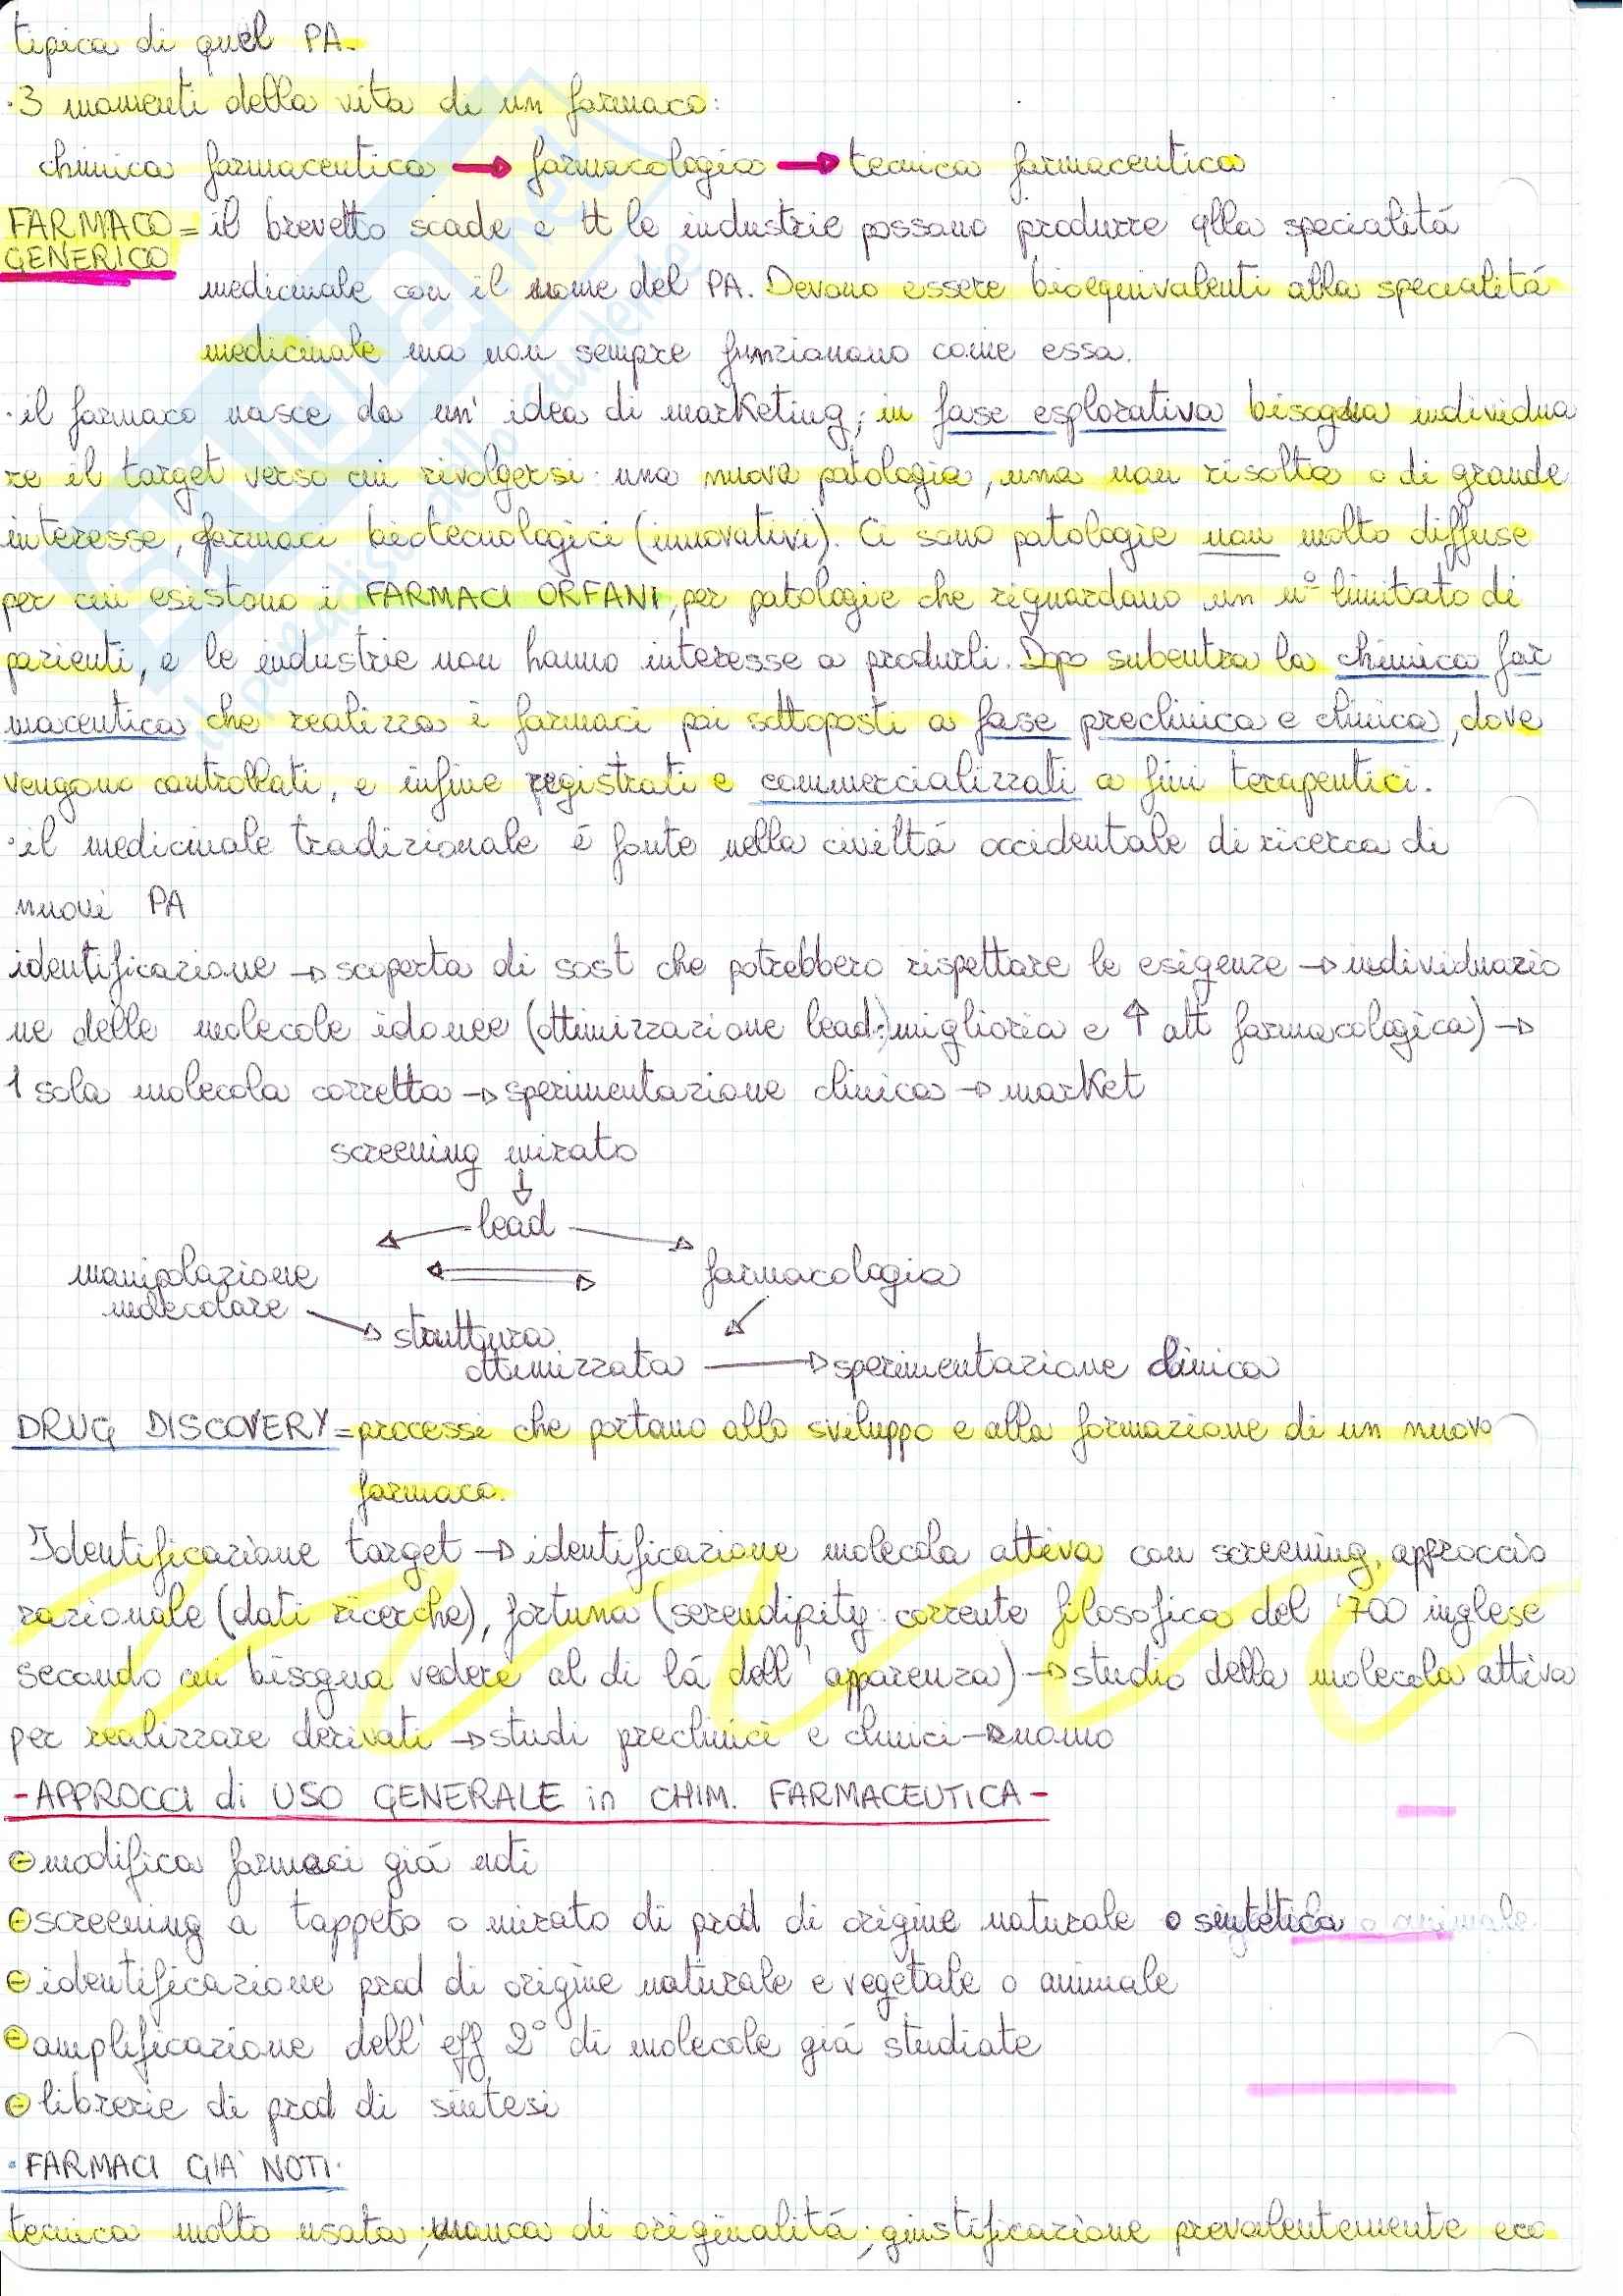 tipica di quel PA.
·3 momenti della vita di un farmaco:
chimica farmaceutica → farmacologia → tecnica farmaceutica
FARMACO GENERICO = il brevetto scade e tt le industrie possono produrre qlla specialitá
medicinale con il nome del PA. Devono essere bioequivalenti alla specialitá
medicinale ma non sempre funzionano come essa.
·il farmaco nasce da un' idea di marketing; in fase esplorativa bisogna individua
re il target verso cui rivolgersi: una nuova patologia, una non risolta o di grande
interesse, farmaci biotecnologici (innovativi). Ci sono patologie non molto diffuse
per cui esistono i FARMACI ORFANI, per patologie che riguardano un n° limitato di
pazienti, e le industrie non hanno interesse a produrli. Dopo subentra la chimica far
maceutica che realizza i farmaci poi sottoposti a fase preclinica e clinica, dove
vengono controllati, e infine registrati e commercializzati a fini terapeutici.
·il medicinale tradizionale é fonte nella civiltá occidentale di ricerca di
nuovi PA
identificazione → scoperta di sost che potrebbero rispettare le esigenze → individuazio
ne delle molecole idonee (ottimizzazione lead: migliora e ↑ att farmacologica) →
1 sola molecola corretta → sperimentazione clinica → market
screening mirato
↓
lead
manipolazione ⇌ farmacologia
molecolare
struttura
ottimizzata → sperimentazione clinica
DRUG DISCOVERY = processi che portano allo sviluppo e alla formazione di un nuovo
farmaco.
Identificazione target → identificazione molecola attiva con screening, approccio
razionale (dati ricerche), fortuna (serendipity: corrente filosofica del '700 inglese
secondo cui bisogna vedere al di lá dell' apparenza) → studio della molecola attiva
per realizzare derivati → studi preclinici e clinici → uomo
-APPROCCI di USO GENERALE in CHIM. FARMACEUTICA-
modifica farmaci giá noti
screening a tappeto o mirato di prod di origine naturale o sintetica o animale
identificazione prod di origine naturale e vegetale o animale
amplificazione dell' eff 2° di molecole giá studiate
librerie di prod di sintesi
·FARMACI GIA' NOTI·
tecnica molto usata; manca di originalitá; giustificazione prevalentemente eco